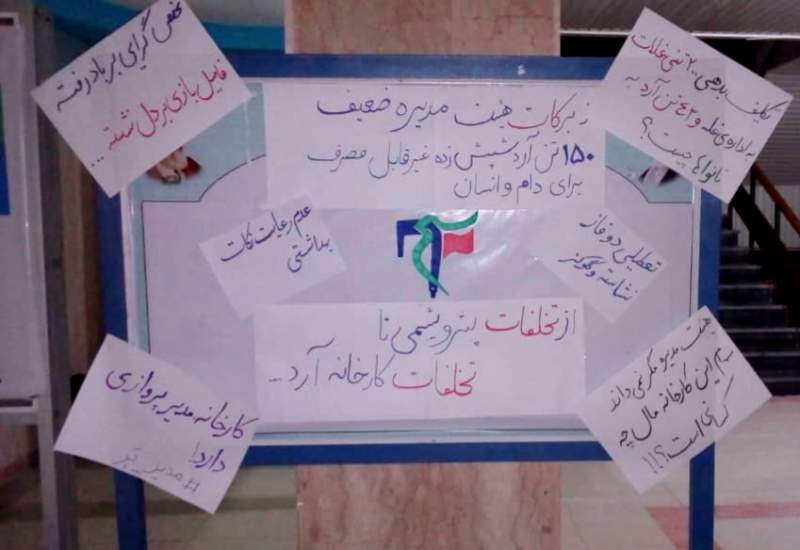 تخصص گرای بر باد رفته
فامیل بازی بر دل نشسته ...
تکلیف بدهی ۲۰۰ تنی غلات
به اداره‌ی غله و ۴۳ تن آرد به
نانواها چیست؟
ز برکات هیئت مدیره ضعیف
۱۵۰ تن آرد شپش زده غیر قابل مصرف
برای دام و انسان
عدم رعایت نکات
بهداشتی
تعطیلی دو فاز
نشاسته و گلوکز
از تخلفات پتروشیمی تا
تخلفات کارخانه آرد ...
کارخانه مدیر پروازی
دارد!
#مدیر_
هیئت مدیره مگر نمی داند
سهام این کارخانه مال چه
کسانی است؟!!!